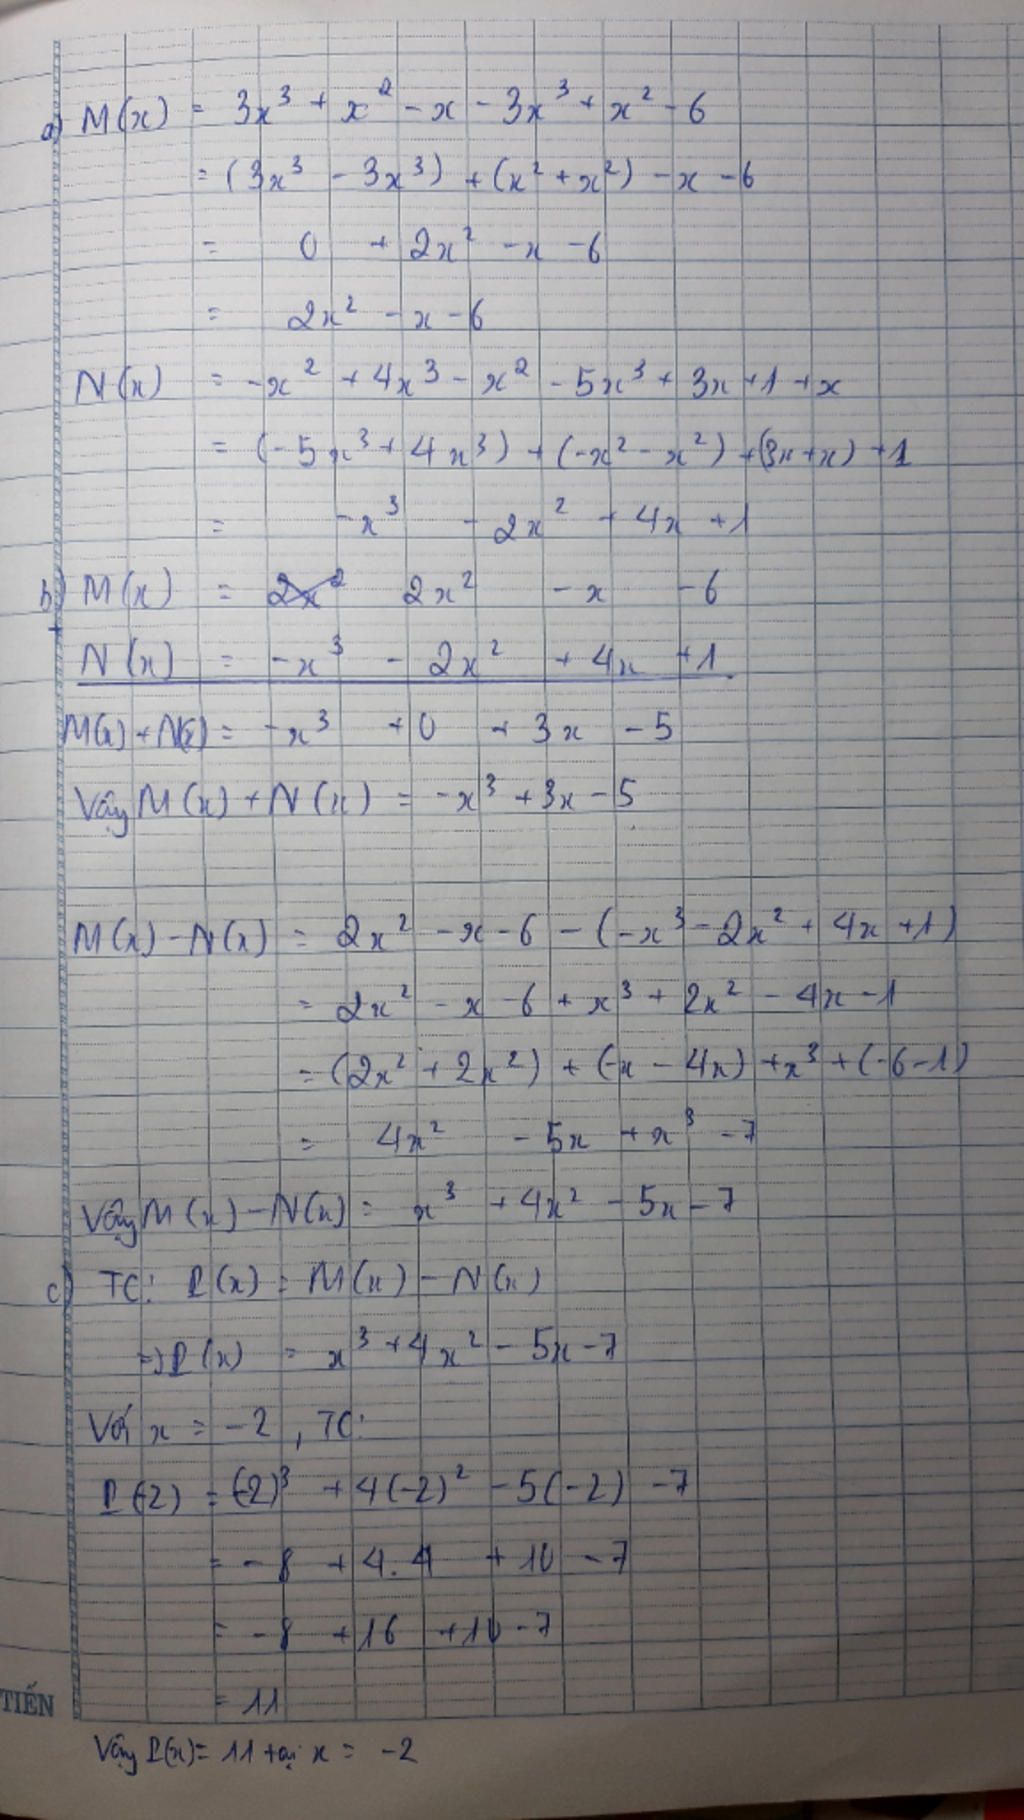 a) M(x) = 3x³ + x² - x - 3x³ + x² - 6
= (3x³ - 3x³) + (x² + x²) - x - 6
= 0 + 2x² - x - 6
= 2x² - x - 6
N(x) = -x² + 4x³ - x² - 5x³ + 3x + 1 + x
= (-5x³ + 4x³) + (-x² - x²) + (3x + x) + 1
= -x³ - 2x² + 4x + 1
b) M(x) = 2x² 2x² - x - 6
+
N(x) = -x³ - 2x² + 4x + 1
M(x) + N(x) = -x³ + 0 + 3x - 5
Vậy M(x) + N(x) = -x³ + 3x - 5
M(x) - N(x) = 2x² - x - 6 - (-x³ - 2x² + 4x + 1)
= 2x² - x - 6 + x³ + 2x² - 4x - 1
= (2x² + 2x²) + (-x - 4x) + x³ + (-6 - 1)
= 4x² - 5x + x³ - 7
Vậy M(x) - N(x) = x³ + 4x² - 5x - 7
c) TC: P(x) = M(x) - N(x)
=> P(x) = x³ + 4x² - 5x - 7
Với x = -2, TC:
P(-2) = (-2)³ + 4(-2)² - 5(-2) - 7
= -8 + 4.4 + 10 - 7
= -8 + 16 + 10 - 7
= 11
TIẾN
Vậy P(x) = 11 tại x = -2